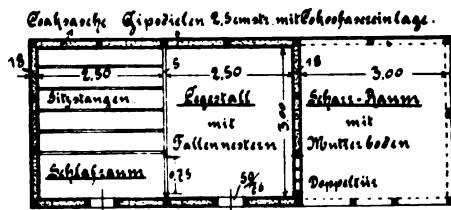 Coaksasche Gipsdielen 2,5 cm str. mit Cokosfasereinlage.
13 2,50 5 2,50 18 3,00
Sitzstangen
Legestall
mit
Fallennestern
3,00
Scharr-Raum
mit
Mutterboden
Schlafraum
0,75
50/76
Doppeltür